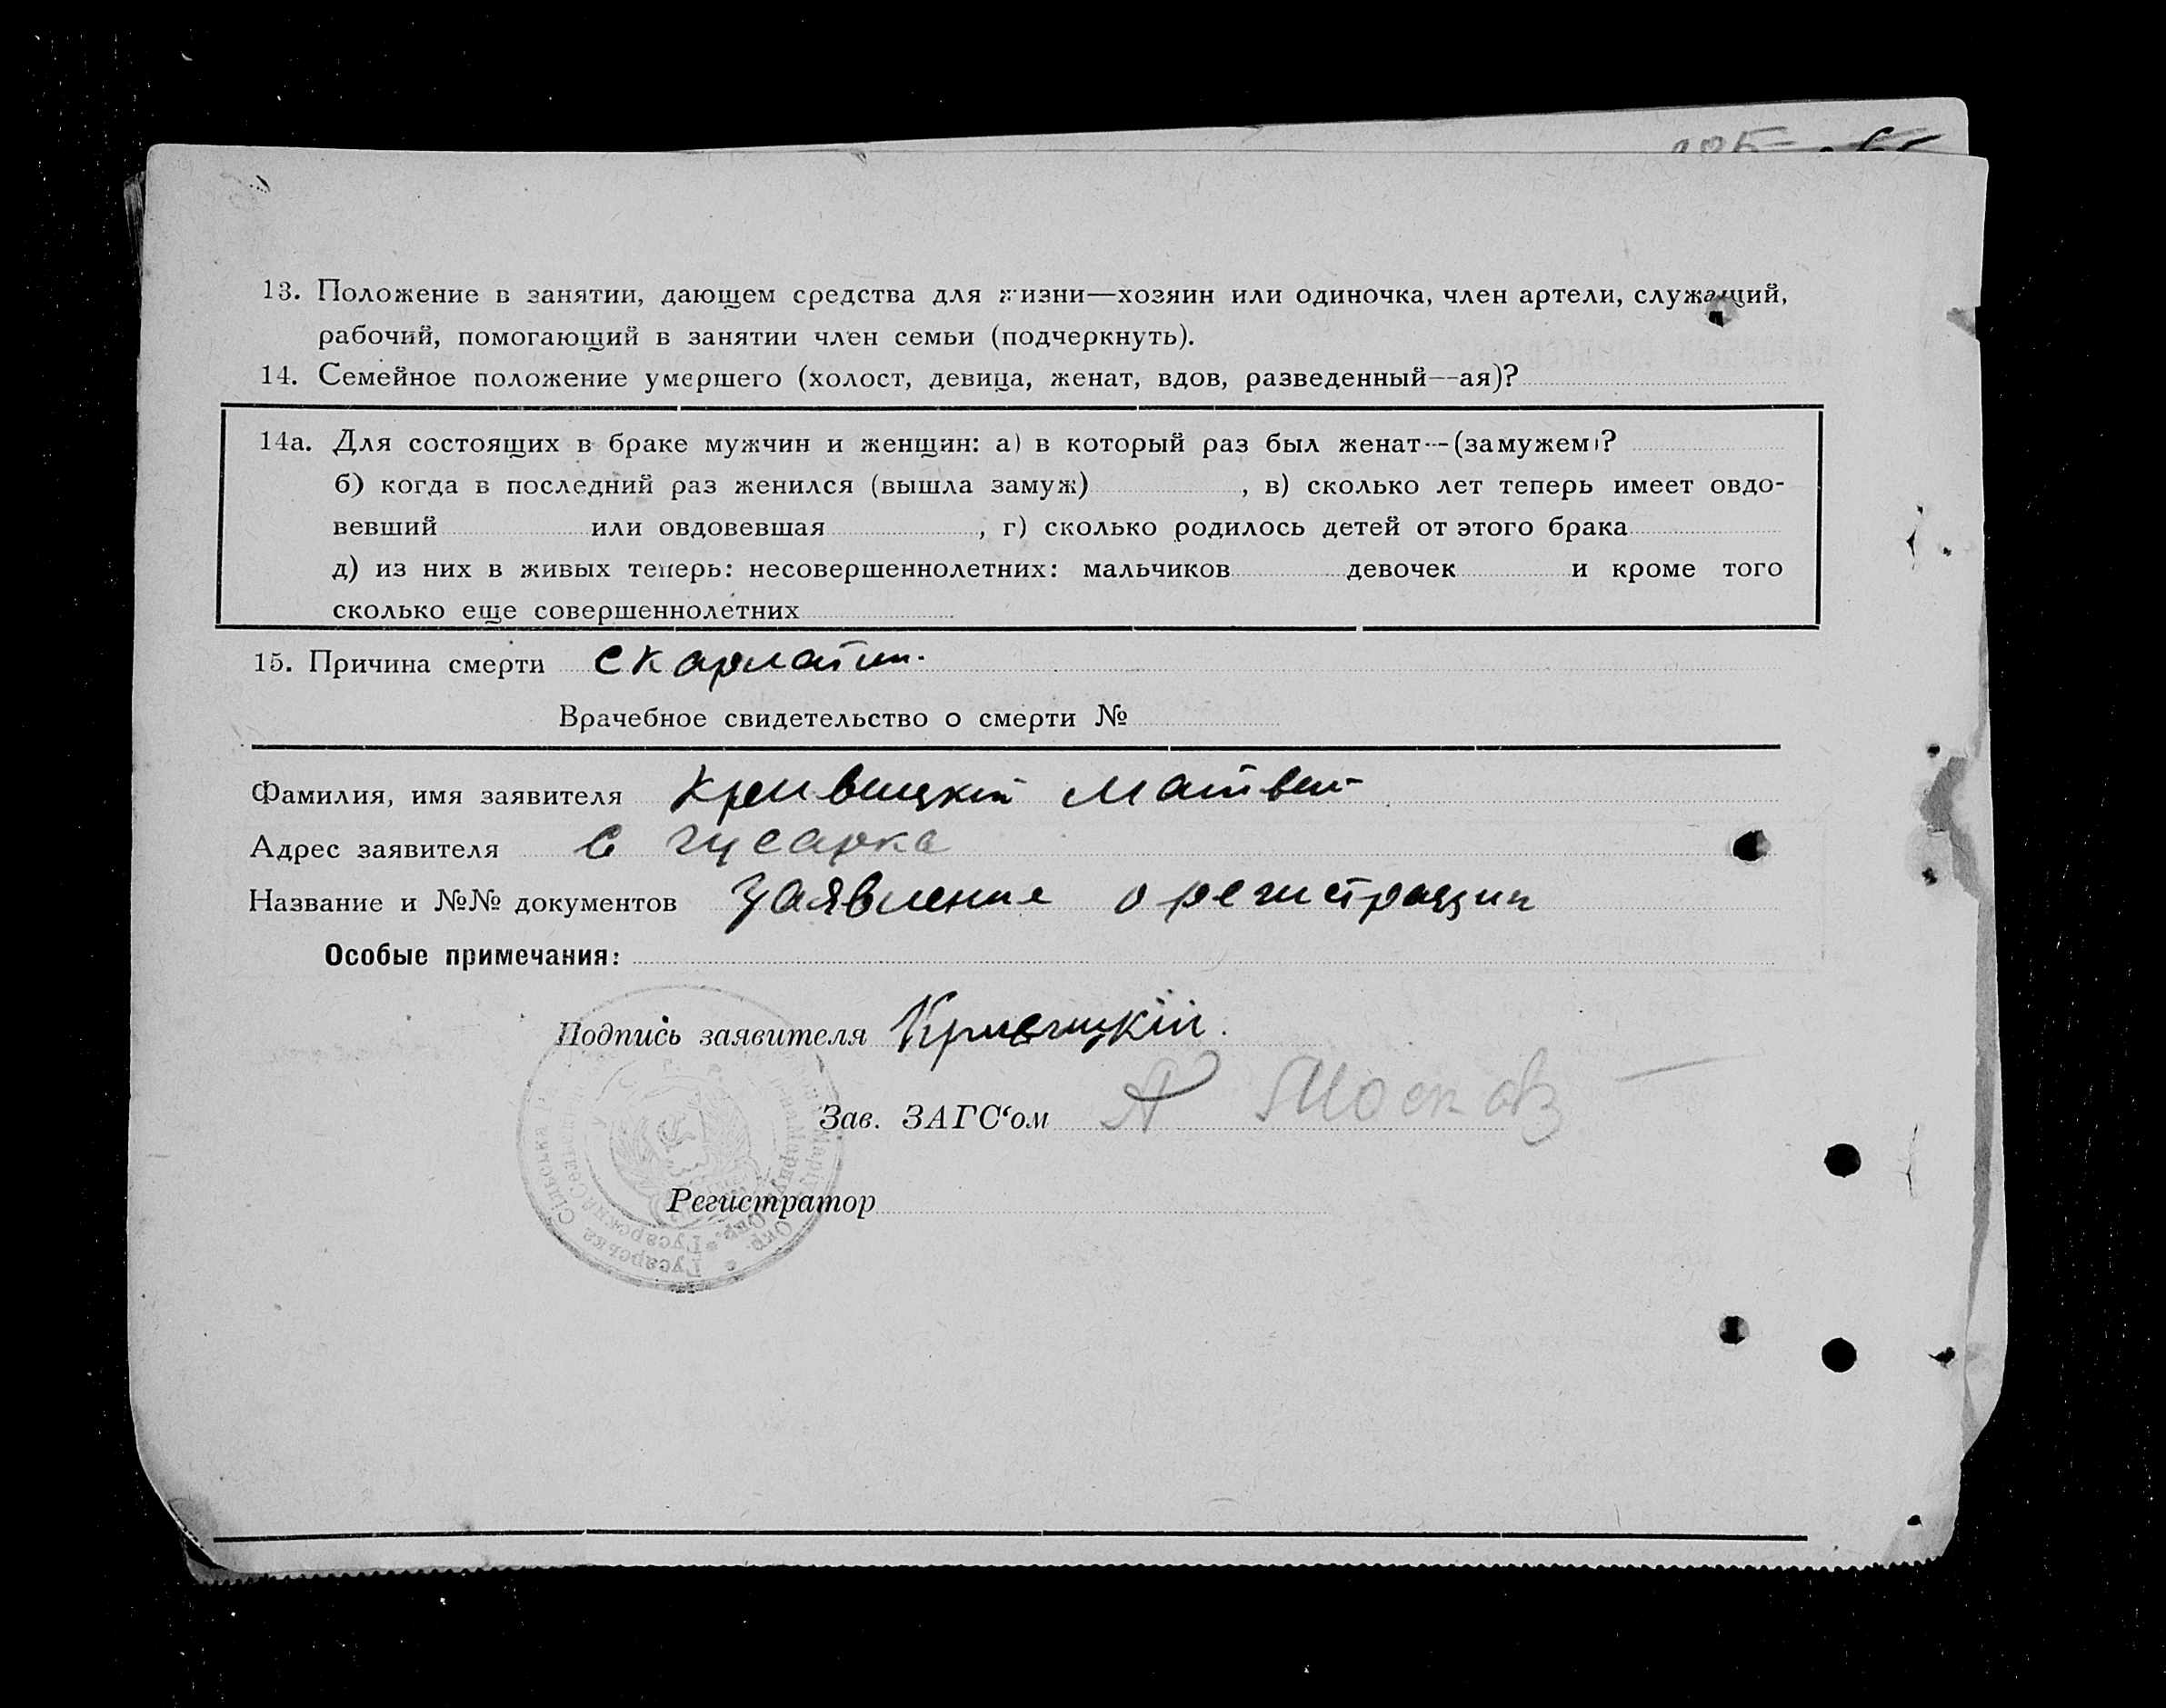 13. Положение в занятии, дающем средства для жизни—хозяин или одиночка, член артели, служащий,
рабочий, помогающий в занятии член семьи (подчеркнуть).
14. Семейное положение умершего (холост, девица, женат, вдов, разведенный—ая)?
14а. Для состоящих в браке мужчин и женщин: а) в который раз был женат—(замужем)?
б) когда в последний раз женился (вышла замуж) , в) сколько лет теперь имеет овдо-
вевший или овдовевшая , г) сколько родилось детей от этого брака
д) из них в живых теперь: несовершеннолетних: мальчиков девочек и кроме того
сколько еще совершеннолетних
15. Причина смерти скарлатин.
Врачебное свидетельство о смерти №
Фамилия, имя заявителя Кривицкий Матвей
Адрес заявителя с Гусарка
Название и №№ документов Заявление о регистрации
Особые примечания:
Подпись заявителя Кривицкій.
Зав. ЗАГС‘ом
Регистратор
Гусарська Сільська Окр.